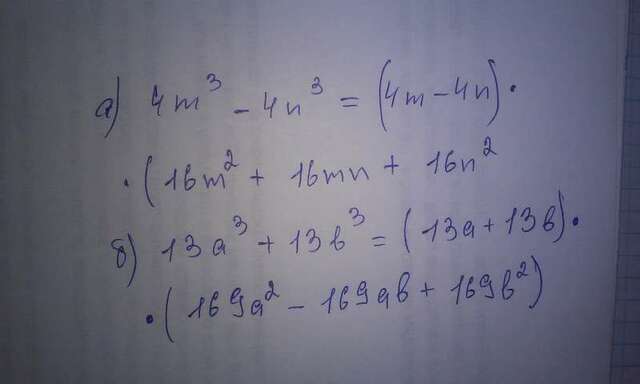 а) 4m³ - 4n³ = (4m - 4n) ·
· (16m² + 16mn + 16n²
б) 13a³ + 13b³ = (13a + 13b) ·
· (169a² - 169ab + 169b²)